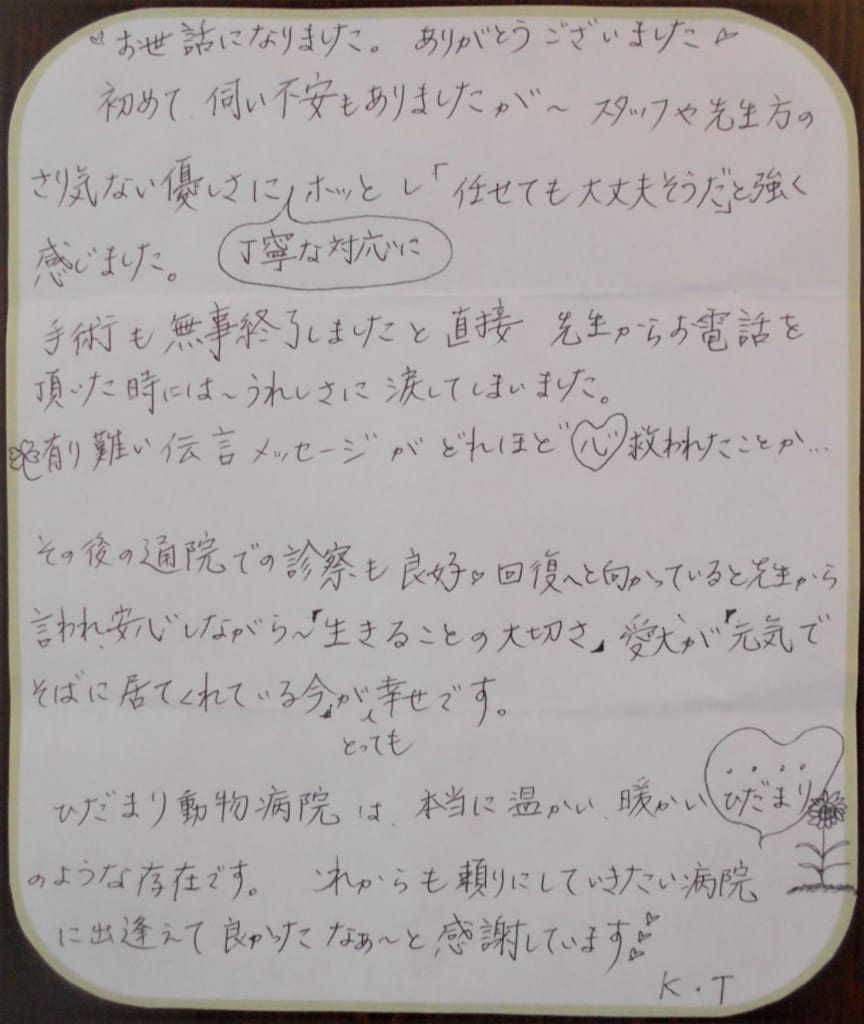 ♡お世話になりました。 ありがとうございました♡
初めて 伺い不安もありましたが〜 スタッフや先生方の
さり気ない優しさに ホッとし「任せても大丈夫そうだ」と強く
丁寧な対応に
感じました。
手術も無事終了しましたと直接 先生からお電話を
頂いた時には〜うれしさに涙してしまいました。
有り難い伝言メッセージがどれほど心救われたことか…
その後の通院での診察も良好♡回復へと向かっていると先生から
言われ、安心しながら〜「生きることの大切さ」愛犬が「元気で
そばに居てくれている今」が幸せです。
とっても
ひだまり動物病院は、本当に温かい、暖かいひだまり
のような存在です。 これからも頼りにしていきたい病院
に出逢えて良かったなぁ〜と感謝しています♡♡♡
K・T